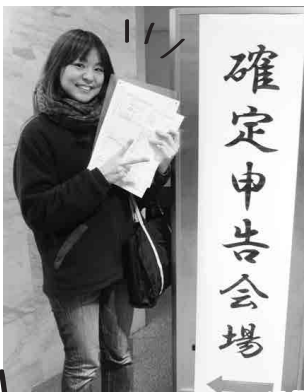 確定申告会場